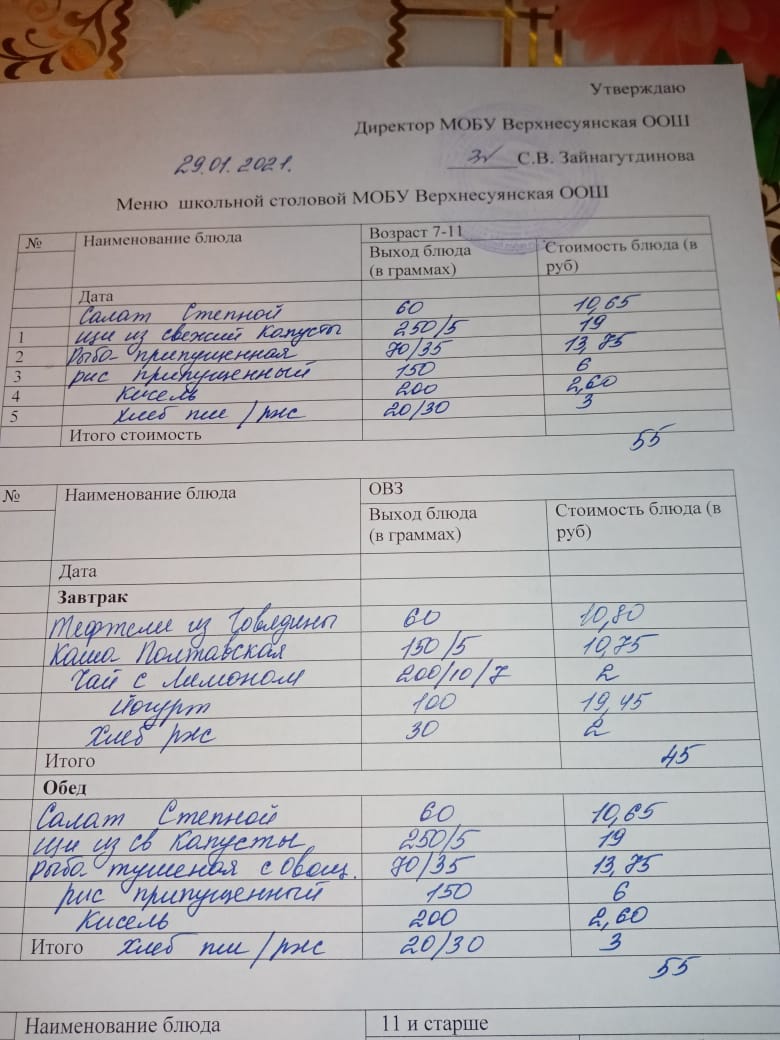 Утверждаю
Директор МОБУ Верхнесуянская ООШ
29.01.2021. С.В. Зайнагутдинова
Меню школьной столовой МОБУ Верхнесуянская ООШ
№ Наименование блюда Возраст 7-11
Выход блюда (в граммах) Стоимость блюда (в руб)
Дата
Салат Степной 60 10,65
1 щи из свежий капусты 250/5 19
2 Рыба припущенная 70/35 13,75
3 рис припущенный 150 6
4 Кисель 200 2,60
5 Хлеб пш/ржс 20/30 3
Итого стоимость 55
№ Наименование блюда ОВЗ
Выход блюда (в граммах) Стоимость блюда (в руб)
Дата
Завтрак
Тефтели из говядины 60 10,80
Каша Полтавская 150/5 10,75
Чай с Лимоном 200/10/7 2
Йогурт 100 19,45
Хлеб ржс 30 2
Итого 45
Обед
Салат Степной 60 10,65
щи из св Капусты 250/5 19
Рыба тушеная с овощ. 70/35 13,75
рис припущенный 150 6
Кисель 200 2,60
Итого Хлеб пш/ржс 20/30 3
55
Наименование блюда 11 и старше